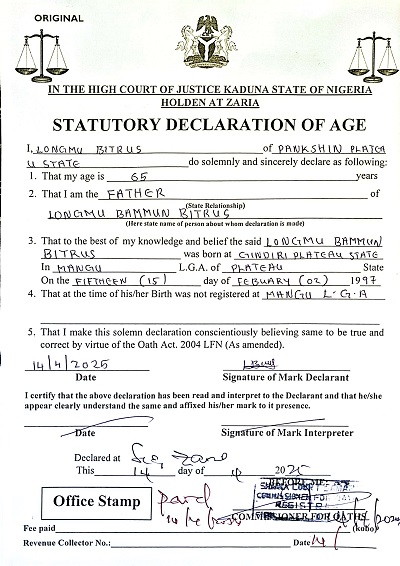 ORIGINAL
IN THE HIGH COURT OF JUSTICE KADUNA STATE OF NIGERIA
HOLDEN AT ZARIA
STATUTORY DECLARATION OF AGE
I, LONGMU BITRUS of PANKSHIN PLATEA
U STATE do solemnly and sincerely declare as following:
1. That my age is 65 years
2. That I am the FATHER of
(State Relationship)
LONGMU BAMMUN BITRUS
(Here state name of person about whom declaration is made)
3. That to the best of my knowledge and belief the said LONGMU BAMMUN
BITRUS was born at GINDIRI PLATEAU STATE
In MANGU L.G.A of PLATEAU State
On the FIFTHEEN (15) day of FEBUARY (02) 1997
4. That at the time of his/her Birth was not registered at MANGU L.G.A
5. That I make this solemn declaration conscientiously believing same to be true and
correct by virtue of the Oath Act. 2004 LFN (As amended).
14/4/2025
Date Signature of Mark Declarant
I certify that the above declaration has been read and interpret to the Declarant and that he/she
appear clearly understand the same and affixed his/her mark to it presence.
Date Signature of Mark Interpreter
Declared at
This 14 day of 2025
BEFORE ME:
Office Stamp
COMMISSIONER FOR OATHS
Fee paid (kobo)
Revenue Collector No.: Date